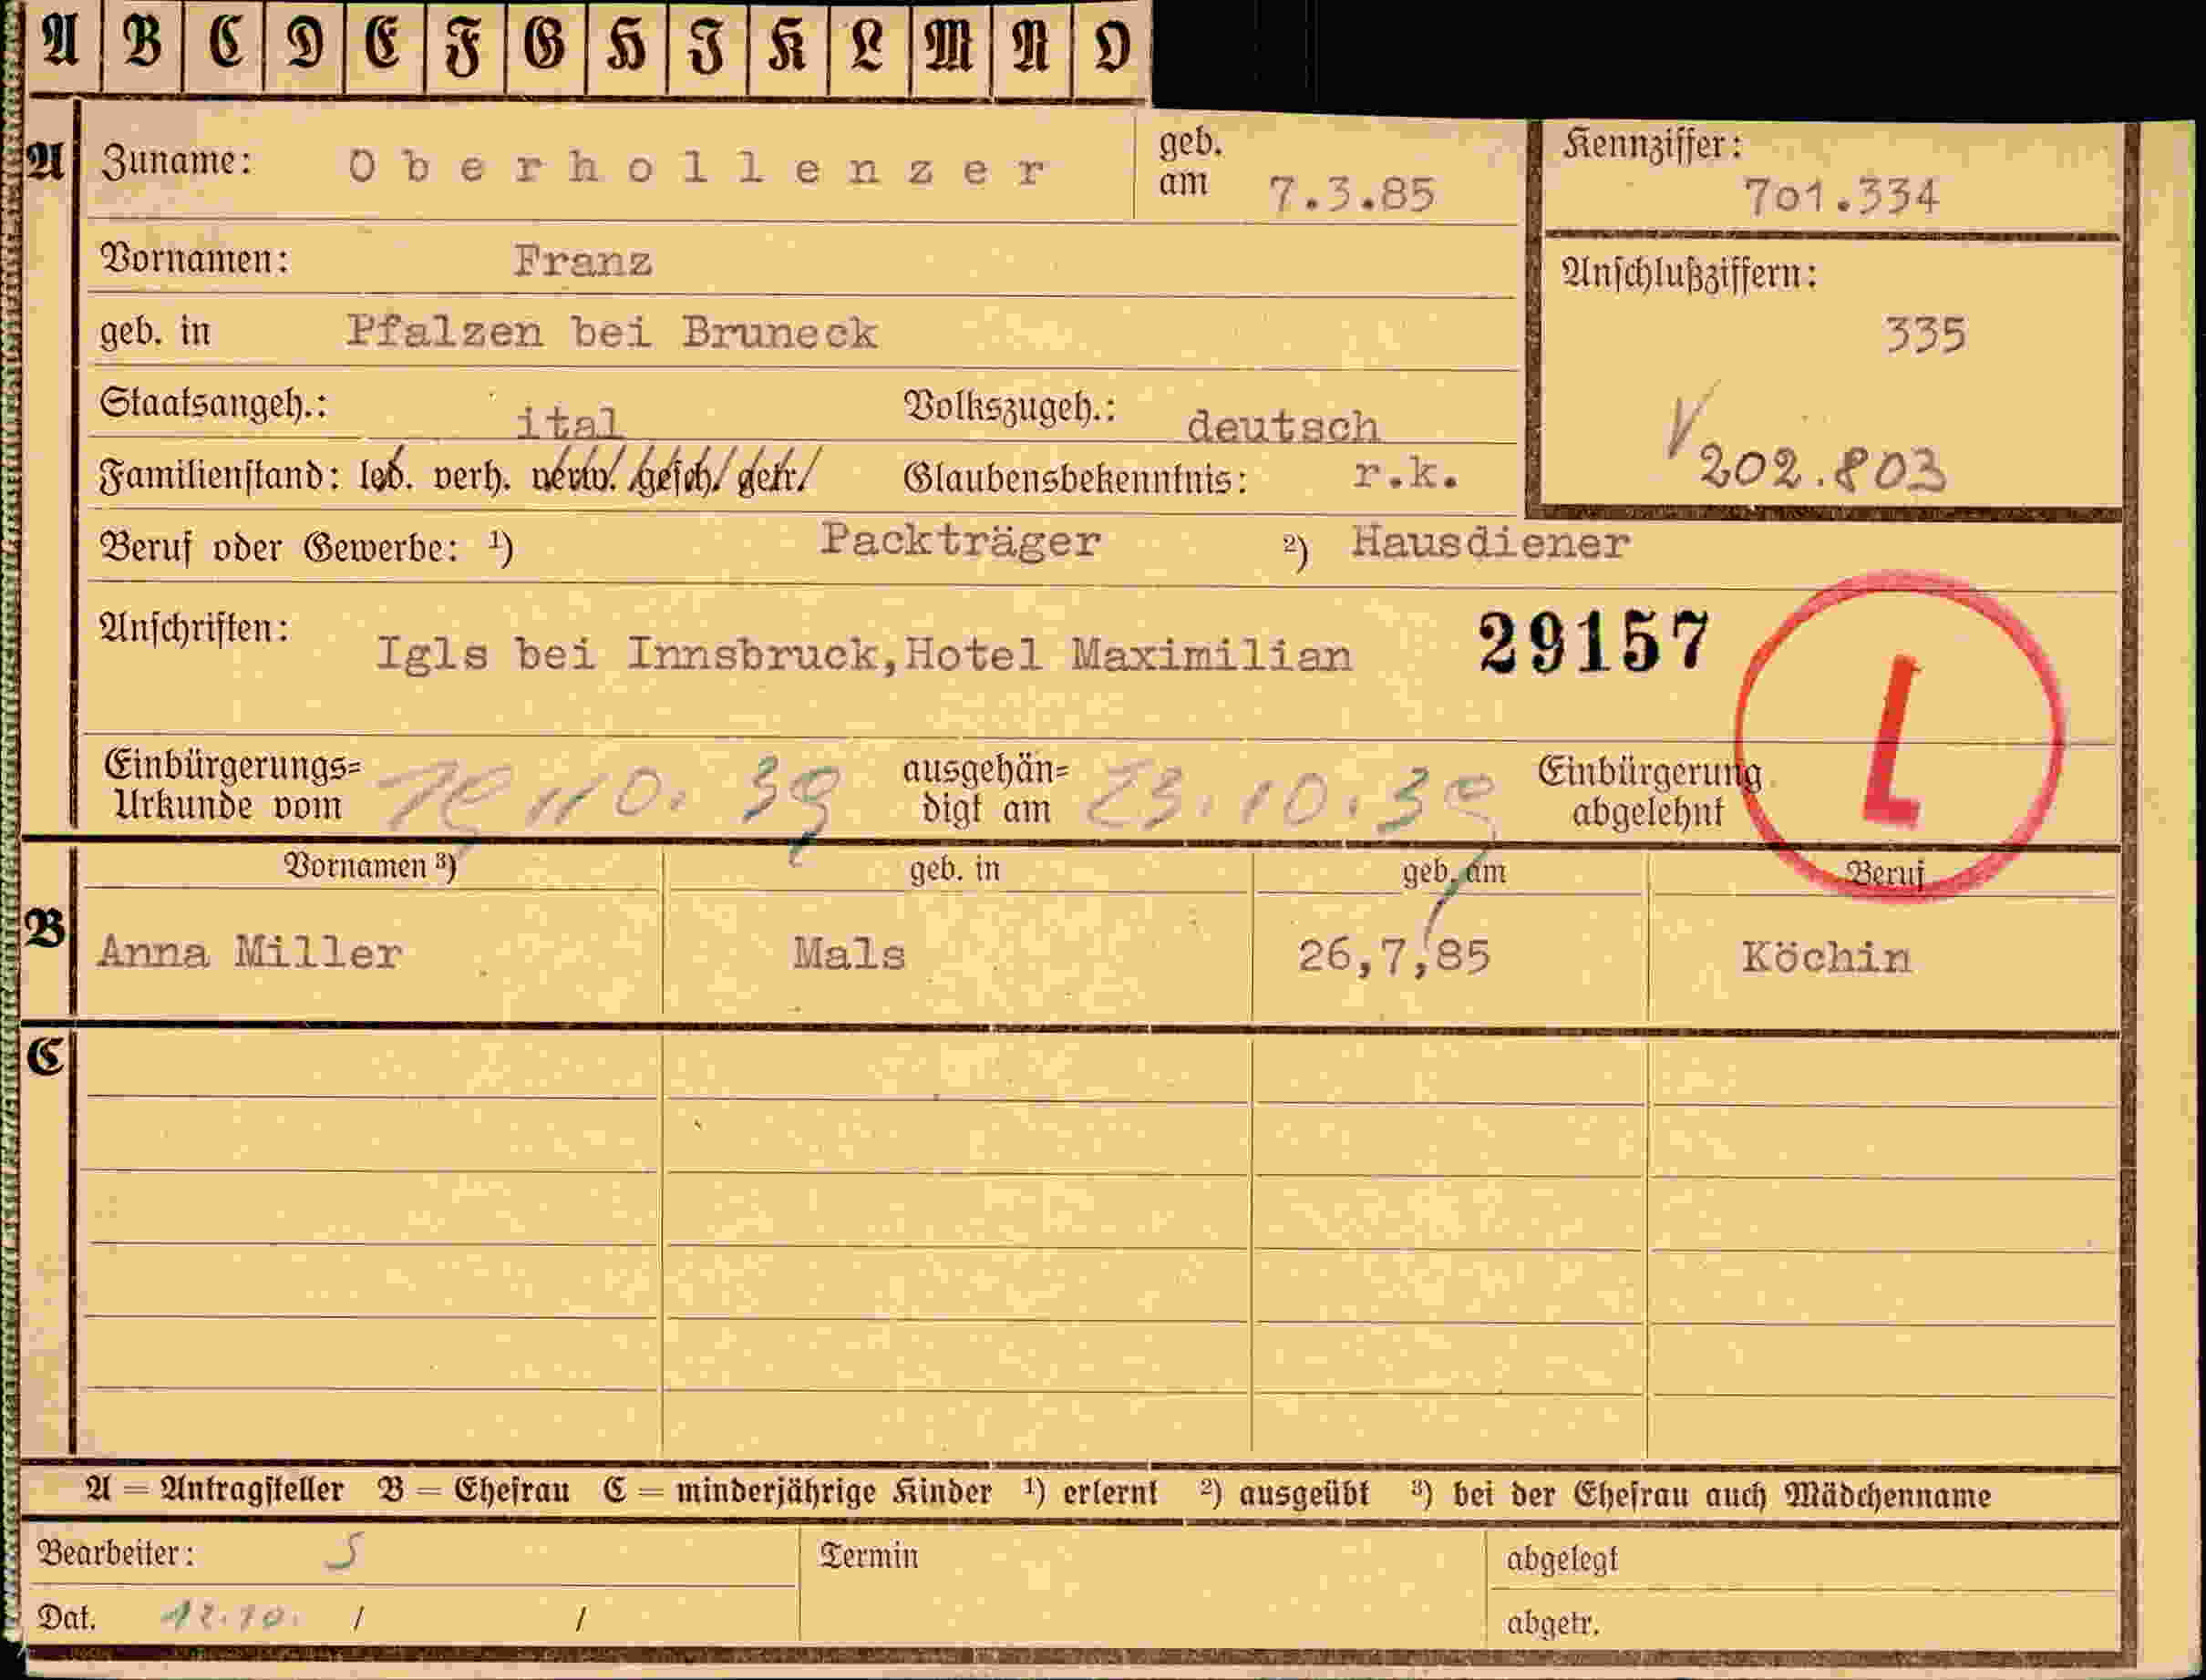 A B C D E F G H I K L M N O
A Zuname: Oberhollenzer geb. am 7.3.85 Kennziffer: 701.334
Vornamen: Franz Anschlußziffern: 335
geb. in Pfalzen bei Bruneck
Staatsangeh.: ital Volkszugeh.: deutsch V 202.803
Familienstand: led. verh. verw. gesch. getr. Glaubensbekenntnis: r.k.
Beruf oder Gewerbe: 1) Packträger 2) Hausdiener
Anschriften: Igls bei Innsbruck, Hotel Maximilian 29157 L
Einbürgerungs= Urkunde vom 10. 39 ausgehän= digt am 23.10.39 Einbürgerung abgelehnt
Vornamen 3) geb. in geb. am Beruf
B Anna Miller Mals 26,7,85 Köchin
C
A = Antragsteller B = Ehefrau C = minderjährige Kinder 1) erlernt 2) ausgeübt 3) bei der Ehefrau auch Mädchenname
Bearbeiter: S Termin abgelegt
Dat. 12.10. / / abgetr.